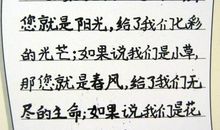 您就是阳光,给了我们七彩
的光芒;如果说我们是小草,
那您就是春风,给了我们无
尽的生命;如果说我们是花